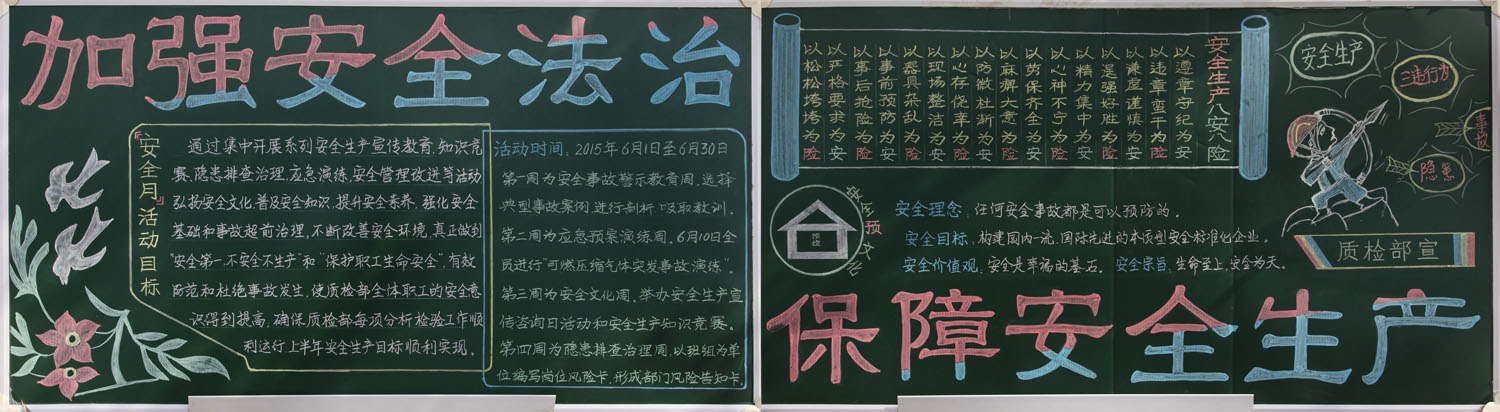 加强安全法治
“安全月”活动目标
通过集中开展系列安全生产宣传教育、知识竞
赛、隐患排查治理、应急演练、安全管理改进等活动
弘扬安全文化、普及安全知识、提升安全素养、强化安全
基础和事故超前治理，不断改善安全环境，真正做到
“安全第一、不安全不生产”和“保护职工生命安全”，有效
防范和杜绝事故发生，使质检部全体职工的安全意
识得到提高，确保质检部每项分析检验工作顺
利运行，上半年安全生产目标顺利实现。
活动时间：2015年6月1日至6月30日
第一周为安全事故警示教育周。选择
典型事故案例，进行剖析、吸取教训。
第二周为应急预案演练周。6月10日全
员进行“可燃压缩气体突发事故演练”。
第三周为安全文化周。举办安全生产宣
传咨询日活动和安全生产知识竞赛。
第四周为隐患排查治理周，以班组为单
位编写岗位风险卡，形成部门风险告知卡。
安全生产八安八险
以遵章守纪为安
以违章蛮干为险
以谦虚谨慎为安
以逞强好胜为险
以精力集中为安
以心神不宁为险
以劳保齐全为安
以麻痹大意为险
以防微杜渐为安
以心存侥幸为险
以现场整洁为安
以器具杂乱为险
以事前预防为安
以事后抢险为险
以严格要求为安
以松松垮垮为险
安全生产
三违行为
事故
隐患
安全预
文化
安全理念：任何安全事故都是可以预防的。
安全目标：构建国内一流、国际先进的本质型安全标准化企业。
安全价值观：安全是幸福的基石。安全宗旨：生命至上，安全为天。
质检部宣
保障安全生产